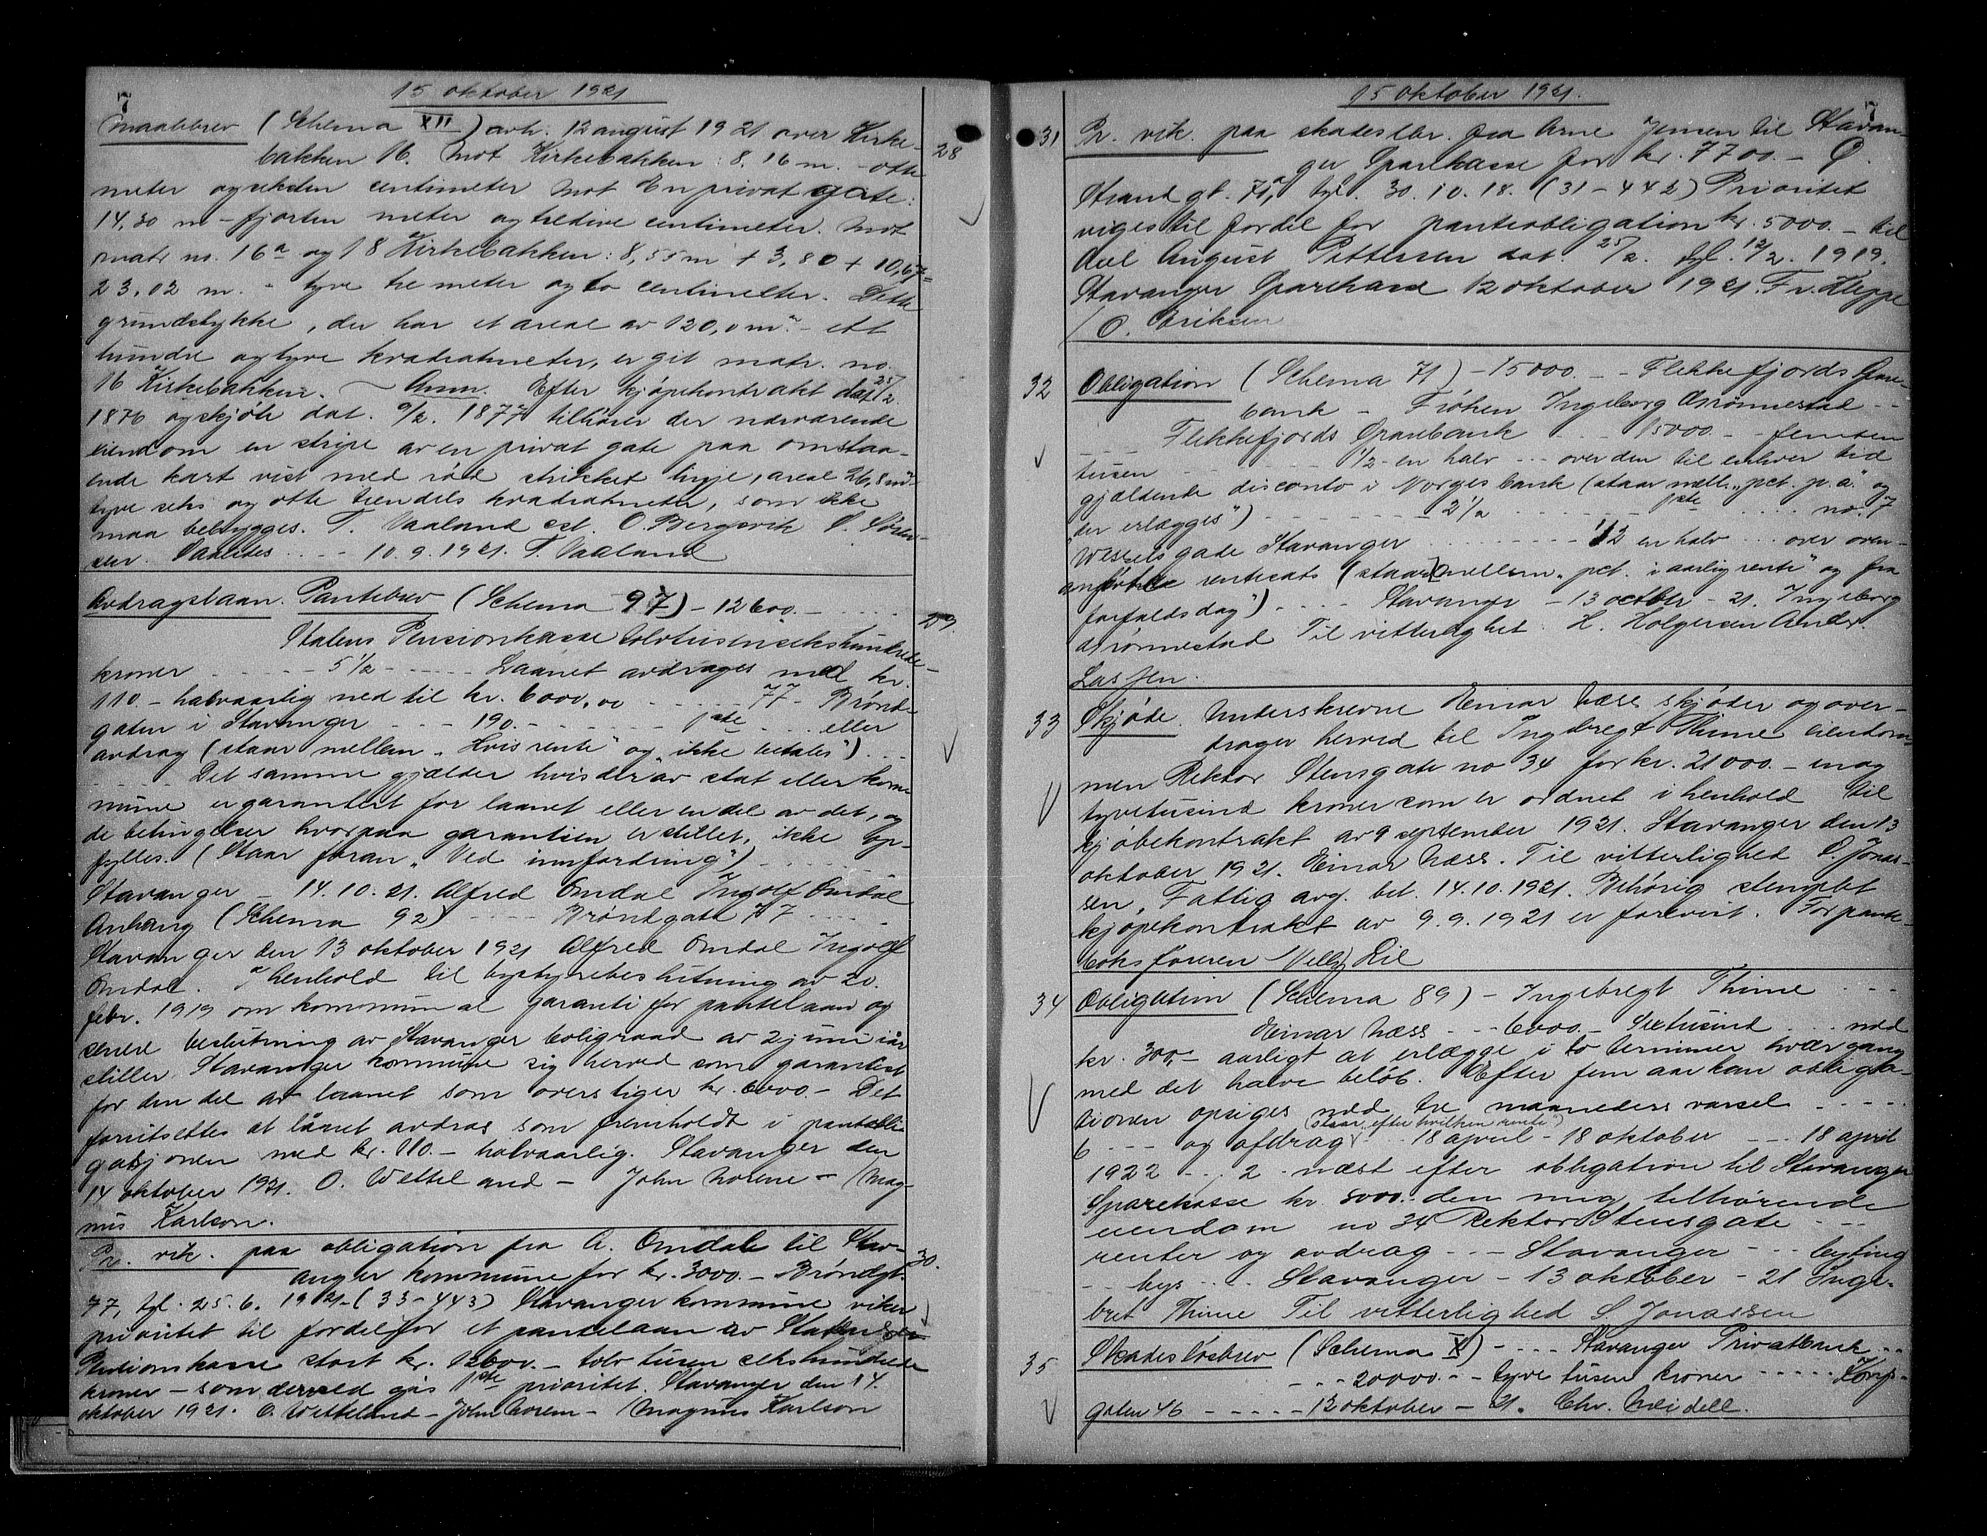 7
15 oktober 1921
Maalebrev (Schema XII) avh. 12 august 1921 over Kirke-
bakken 16. Mot Kirkebakken: 8,16 m. - otte
28
meter og seksten centimeter Mot En privat gate:
14,30 m - fjorten meter og tredive centimeter. Mot
matr no. 16a og 18 Kirkebakken: 8,55 m + 3,80 + 10,67 =
23,02 m. - tyve tre meter og to centimeter. Dette
grundstykke, der har et areal av 120,0 m2 - ett
hundre og tyve kvadratmeter, er git matr. no.
16 Kirkebakken. - Anm. Efter kjøpekontrakt dat.
1876 og skjøte dat. 1877 tilhører der nærværende
eiendom en stripe av en privat gate paa omstaa-
ende kart vist med rød strekket linje, areal 26,8 m2
tyve seks og otte tiendels kvadratmeter, som ikke
maa bebygges. T. Vaaland O. Bergsvik
sen. Vaaledes .... 10.9.1921. T. Vaaland
Avdragslaan. Pantebrev (Schema 97) - 12600. - ....
29.
Statens Pensionskasse tolvtusensekshundrede
kroner .... 5 1/2 .... Laanet avdrages med kr.
110. - halvaarlig ned til kr. 6000,00 .... 77 - Brønd-
gaten i Stavanger ... 190. .... 1ste .... eller
avdrag (staar mellem "Hvis rente" og "ikke betales") ...
.... Det samme gjælder hvis der av stat eller kom-
mune er garantert for laanet eller en del av det, og
de betingelser hvorpaa garantien er stillet, ikke op-
fylles. (Staar foran "Ved innfordring") ....
Stavanger - 14.10.21. Alfred Omdal Ingolf Omdal
Anhang (Schema 92) .... Brøndgate 77 ....
Stavanger den 13 oktober 1921 Alfred Omdal Ingolf
Omdal. I henhold til bystyrebeslutning av 20.
febr. 1919 om kommunal garanti for pantelaan og
senere beslutning av Stavanger boligraad av 2 juni iaar
stiller Stavanger kommune sig herved som garantist
for den del av laanet som overstiger kr. 6000 - Det
forutsettes at lånet avdras som fremholdt i pantobli-
gasjonen med kr. 110. - halvaarlig. Stavanger den
14 oktober 1921. O. Wetteland - John Norem - Mag-
nus Karlson.
Pr. vik. paa obligation fra A. Omdal til Stav-
30.
anger kommune for kr. 3000. - Brøndgt.
77, tgl. 25.6.1921 - (33-443) Stavanger kommune viker
prioritet til fordel for et pantelaan av Statens
Pensionskasse stort kr. 12600. - tolv tusen sekshundrede
kroner - som derved gis 1ste prioritet. Stavanger den 14.
oktober 1921. O. Wetteland - John Norem - Magnus Karlson
7
15 oktober 1921.
31 Pr. vik. paa skadesløsbr. fra Arne Jensen til Stavan-
ger Sparekasse for kr. 7700. - Ø.
Strand gt. 71a, tgl. 30.10.18. (31-442) Prioritet
viges til fordel for panteobligation kr. 5000. - til
Axel August Pettersen dat. 25/2. tgl. 12/2. 1919.
Stavanger Sparekasse 12 oktober 1921. Fr. Kleppe
/ O. Eriksen
32 Obligation (Schema 71) - 15000. - - Flekkefjords Spare-
bank - Frøken Ingeborg Drønnestad - -
.... Flekkefjords Sparebank .... 15000 - - femten
tusen .... 1/2 - en halv ... over den til enhver tid
gjældende disconto i Norges bank (staar mellem "pct. p.a." og
"der erlægges") .... 2 1/2 .... 1ste .... no. 7
Wessels gade Stavanger .... 1/2 en halv .... over oven-
anførte rentesats (staar mellem "pct. i aarlig rente" og "fra
forfaldsdag") .... Stavanger - 13 october - 21. Ingeborg
Drønnestad Til vitterlighet: H. Holgersen Andr.
Lassen.
33 Skjøde. Underskrevne Einar Næss skjøder og over-
drager herved til Ingebregt Thime eiendom-
men Rektor Stensgate no 34 for kr. 21000. - en og
tyvetusind kroner som er ordnet i henhold til
kjøbekontrakt av 9 september 1921. Stavanger den 13
oktober 1921. Einar Næss. Til vitterlighed S. Jonas-
sen. Fattig avg. bet. 14.10.1921. Behørig stemplet
kjøpekontrakt av 9.9.1921 er forevist. For pante-
boksføreren Nelly Lie
34 Obligation (Schema 89) - Ingebregt Thime ...
Einar Næss - - 6000. - Sextusind .... med
kr. 300, - aarligt at erlægge i to terminer hvær gang
med det halve beløb. Efter fem aar kan obliga-
tionen opsiges med tre maaneders varsel ....
(staar efter hvilken rente)
6 .... og afdrag .. 18 april - 18 oktober .... 18 april
1922 ... 2 - næst efter obligation til Stavanger
Sparekasse kr. 8000. - den mig tilhørende
eiendom no 34 Rektor Stensgate ...
renter og avdrag - - Stavanger - - byting
- bys ... Stavanger - 13 oktober - 21 Inge-
bret Thime Til vitterlighed S. Jonassen
35 Skadesløsbrev (Schema X) - .... Stavanger Privatbank ..
.... 20000. - - tyve tusen kroner .... Kongs-
gaten 46 .... 12 oktober - 21. Chr. Meidell.